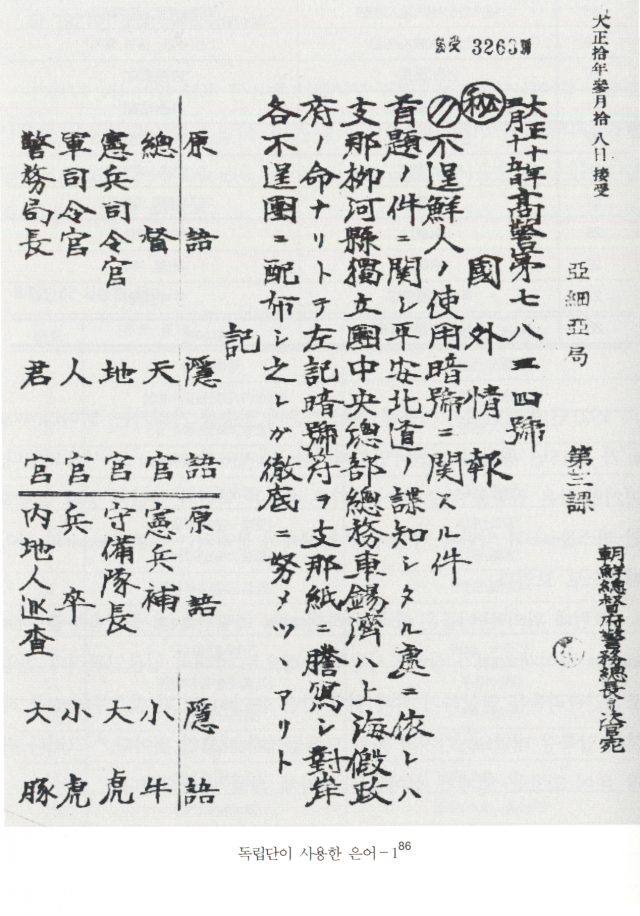 大正拾年參月拾八日接受
密受 3263號
亞細亞局 第三課
朝鮮總督府警務總長ヨリ次官宛
大正十年三月十五日 高警第七八二四號
秘 國外情報
不逞鮮人ノ使用暗號ニ関スル件
首題ノ件ニ関シ平安北道ノ諜知シタル處ニ依レハ
支那柳河縣獨立團中央總部總務車錫濟ハ上海假政
府ノ命ナリトテ左記暗號ヲ支那紙ニ謄寫シ對岸
各不逞團ニ配布シ之レカ徹底ニ努メツツアリト
記
原語 隱語 原語 隱語
總督 天官 憲兵補 小牛
憲兵司令官 地官 守備隊長 大虎
軍司令官 人官 兵卒 小虎
警務局長 君官 内地人巡査 大豚
독립단이 사용한 은어-1 86